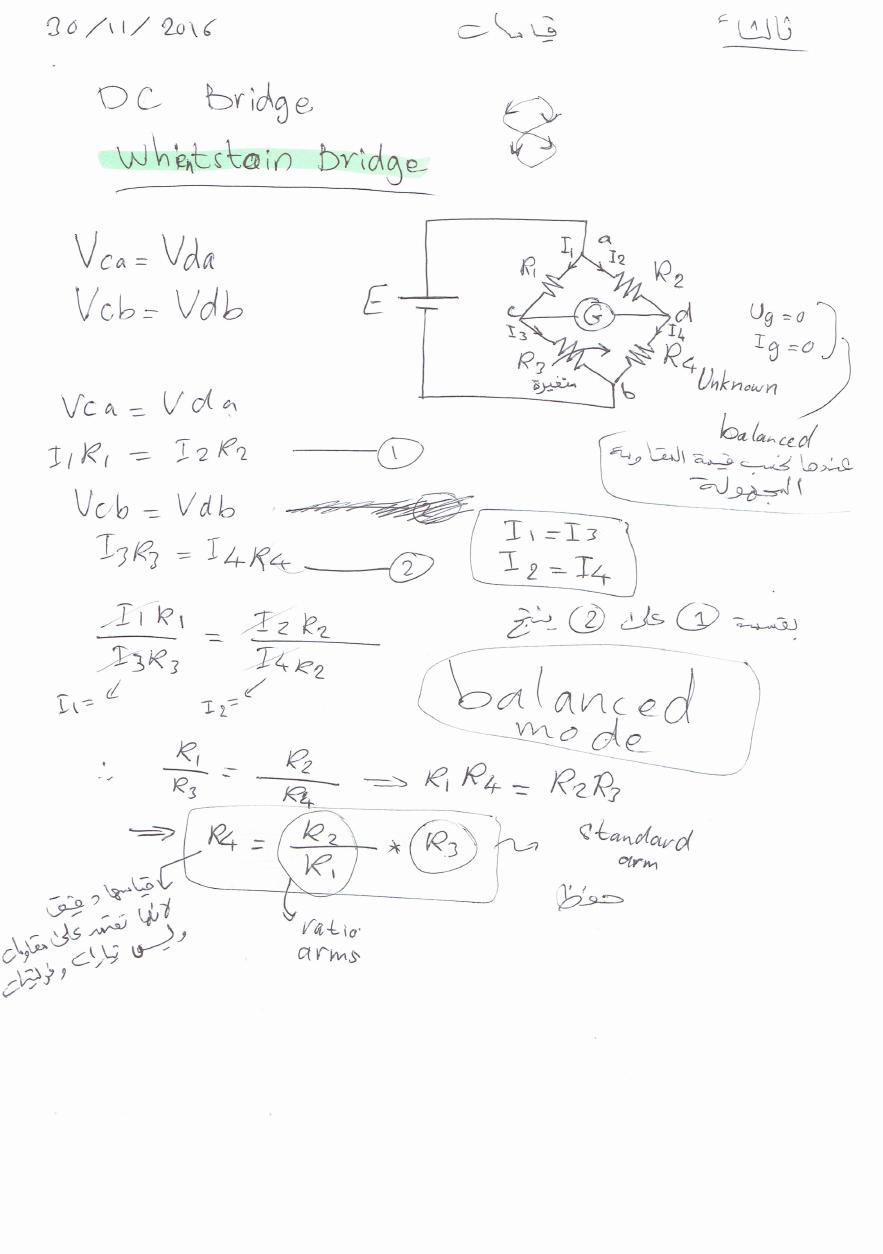 30/11/2016 قياسات ثالثاً
DC Bridge
Whientstain Bridge
Vca = Vda
Vcb = Vdb
E
I1 a I2
R1 R2
c G d
I3 I4
R3 R4
متغيرة Unknown
b
Ug = 0
Ig = 0
balanced
عندما نحسب قيمة المقاومة
المجهولة
Vca = Vda
I1R1 = I2R2 1
Vcb = Vdb
I3R3 = I4R4 2
I1 = I3
I2 = I4
بقسمة 1 على 2 ينتج
I1R1 / I3R3 = I2R2 / I4R2
I1= I2=
balanced
mode
∴ R1 / R3 = R2 / R4 ⇒ R1R4 = R2R3
⇒ R4 = R2 / R1 * R3
standard
arm
حفظ
ratio
arms
قياسها دقيق
لأنها تعتمد على مقاومات
وليس تيارات وفولتيات